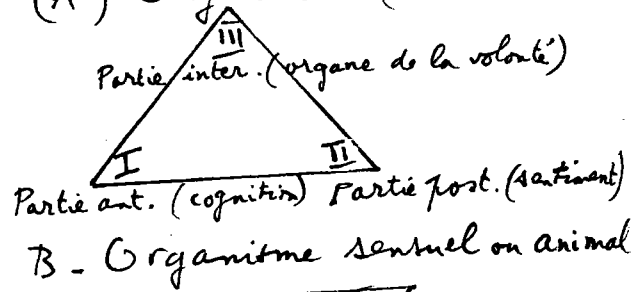 (A)
III
Partie inter. (organe de la volonté)
I II
Partie ant. (cognition) Partie post. (sentiment)
B - Organisme sensuel ou animal